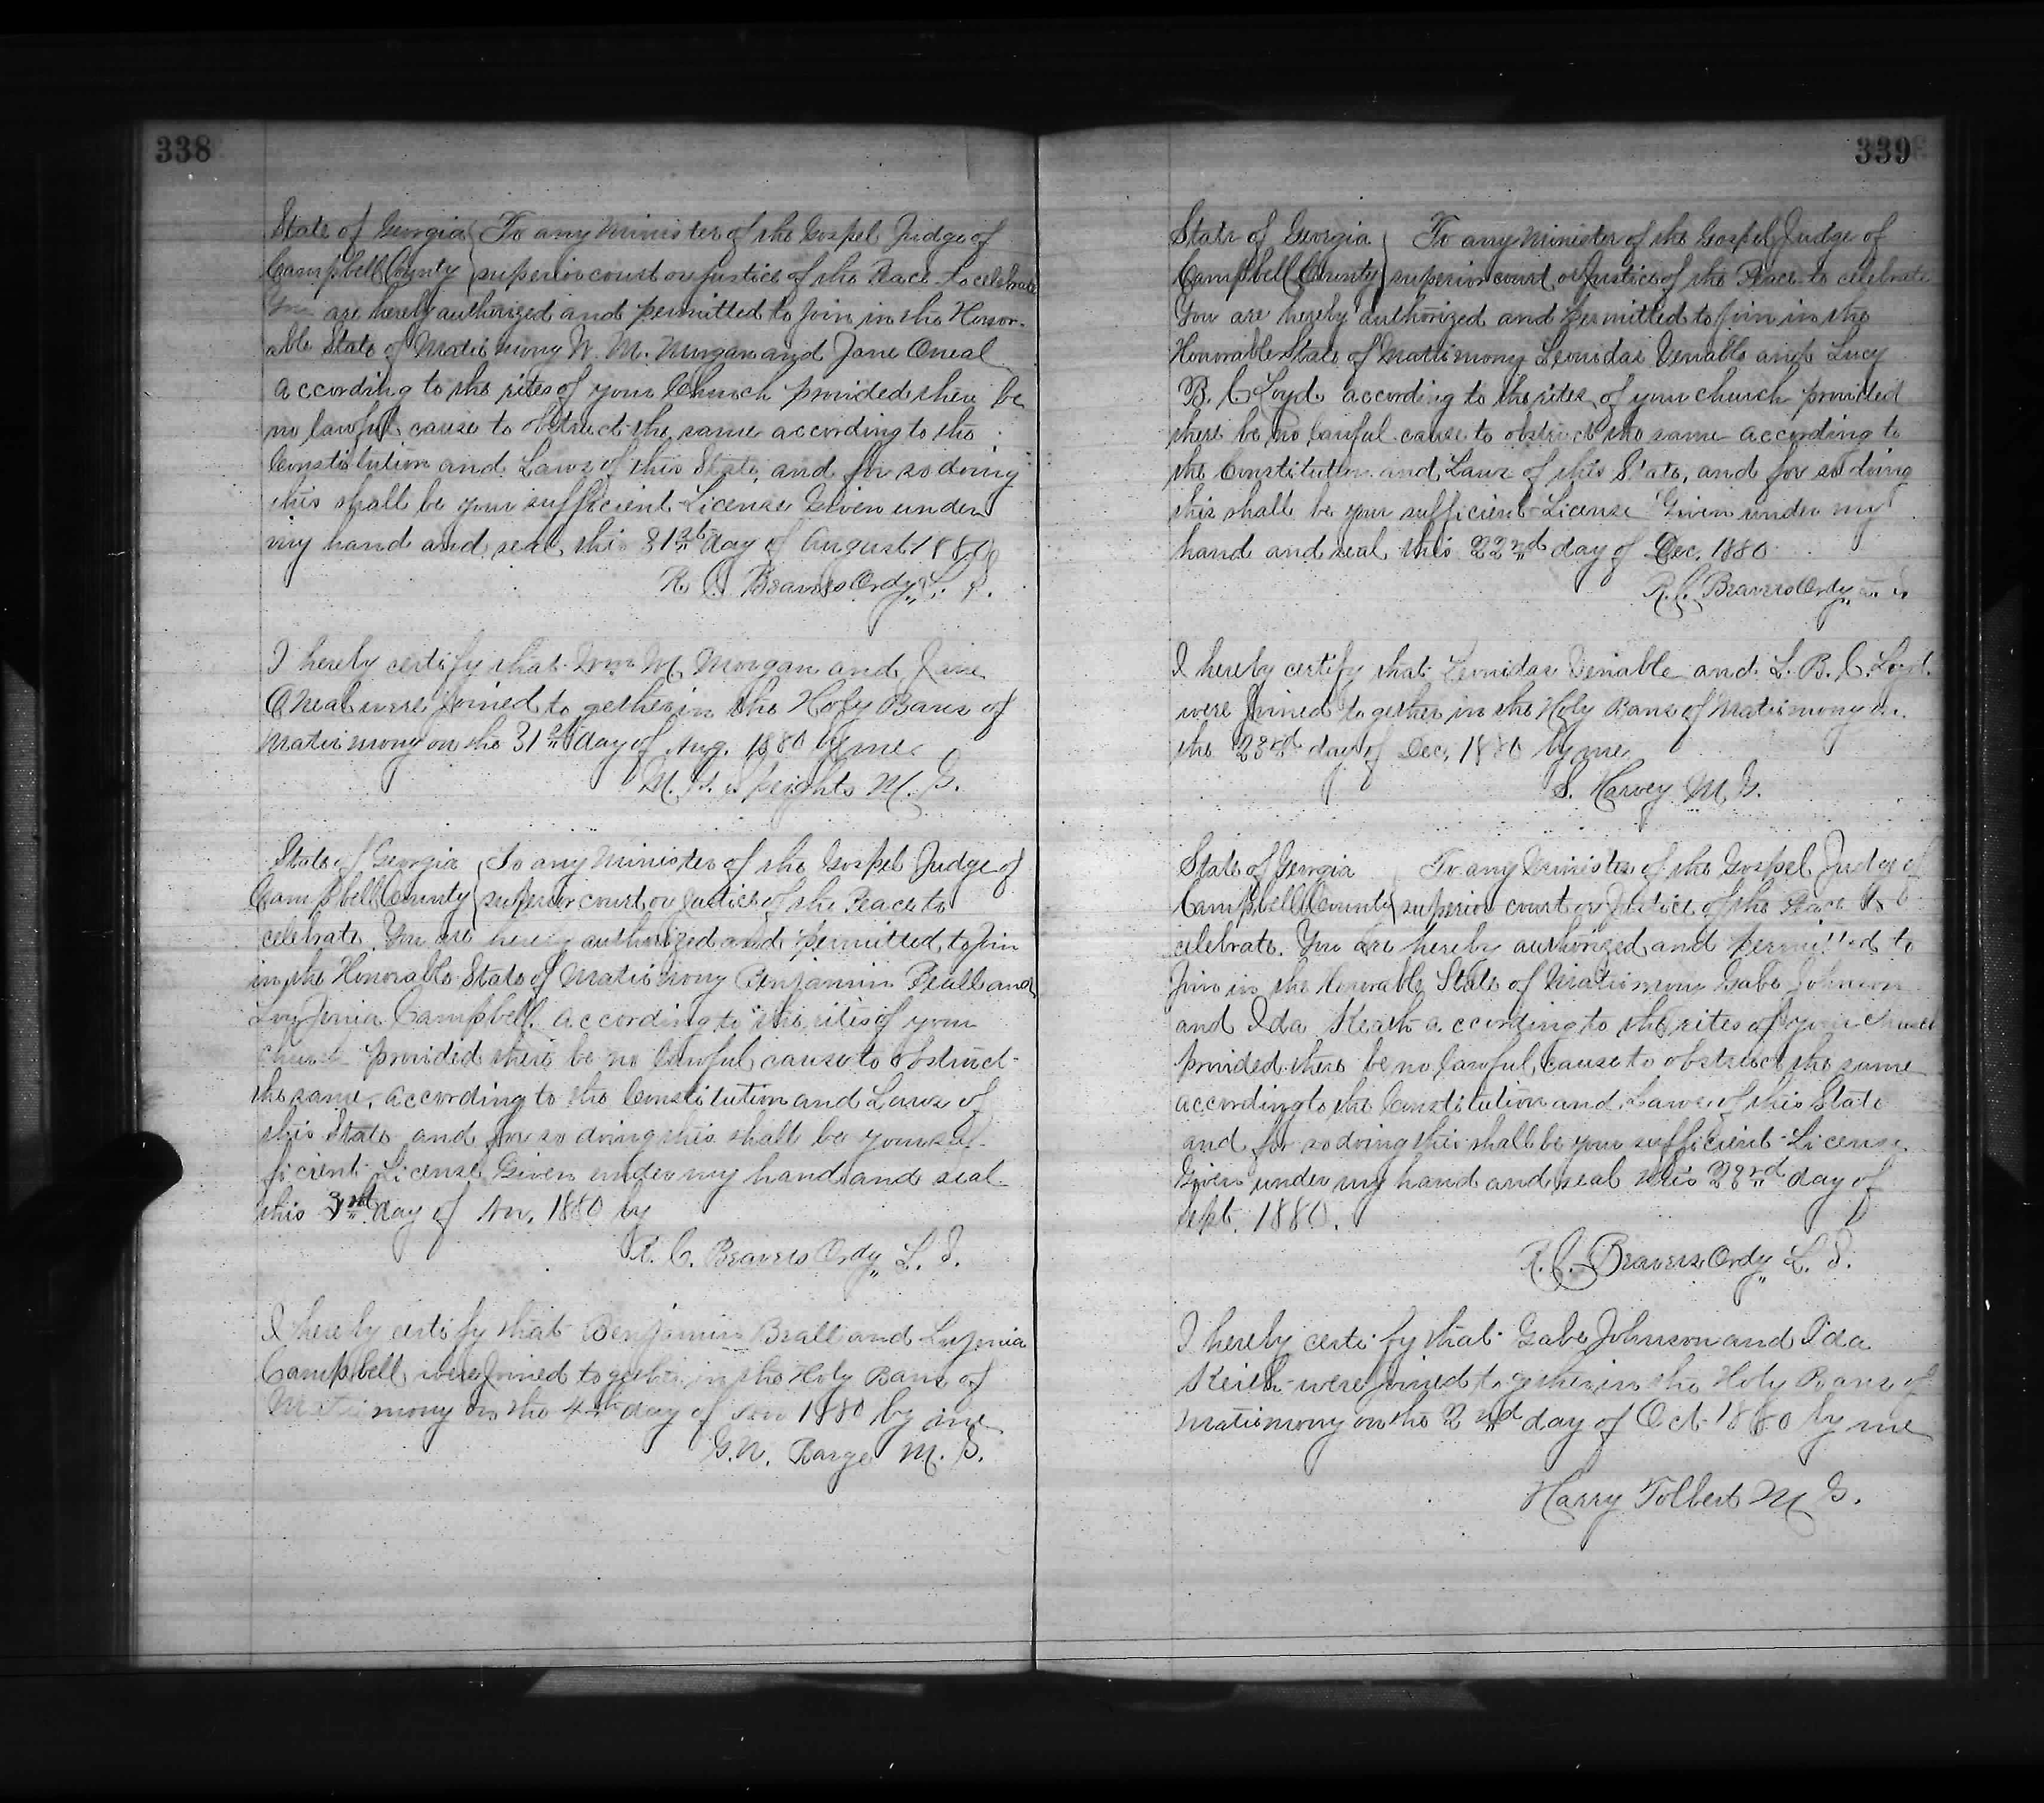 338
State of Georgia To any Minister of the Gospel Judge of
Campbell County superior court or justice of the Peace to celebrate
You are hereby authorized and permitted to Join in the Honor-
able State of Matrimony W. M. Morgan and Jane Oneal
according to the rites of your Church provided there be
no lawful cause to obstruct the same according to the
Constitution and Laws of this State, and for so doing
this shall be your sufficient License Given under
my hand and seal this 31st day of August 1880
R. C. Beavers Ordy L. S.
I hereby certify that Wm M. Morgan and Jane
Oneal were Joined to gether in the Holy Bans of
Matrimony on the 31st day of Aug. 1880 by me
Speights M. G.
State of Georgia To any Minister of the Gospel Judge of
Campbell County superior court or Justice of the Peace to
celebrate. You are hereby authorized and permitted to Join
in the Honorable State of Matrimony Benjamin Beall and
Campbell. according to the rites of your
church provided there be no lawful cause to obstruct
the same, according to the Constitution and Laws of
this State and for so doing this shall be your suf-
ficient License Given under my hand and seal
this 3rd day of Nov. 1880 by
R. C. Beavers Ordy L. S.
I hereby certify that Benjamin Beall and
Campbell were Joined together in the Holy Bans of
Matrimony on the 4th day of Nov 1880 by me
G. N. Barge M. G.
339
State of Georgia To any Minister of the Gospel Judge of
Campbell County superior court or Justice of the Peace to celebrate
You are hereby authorized and permitted to Join in the
Honorable State of Matrimony Leonidas Venable and Lucy
B. C. Loyd according to the rites of your church provided
there be no lawful cause to obstruct the same according to
the Constitution and Laws of this State, and for so doing
this shall be your sufficient License Given under my
hand and seal this 22nd day of Dec. 1880
R. C. Beavers Ordy L. S.
I hereby certify that Leonidas Venable and L. B. C. Loyd
were Joined together in the Holy Bans of Matrimony on
the 23rd day of Dec. 1880 by me
S. Harvey M. G.
State of Georgia To any Minister of the Gospel Judge of
Campbell County superior court or Justice of the Peace to
celebrate. You are hereby authorized and permitted to
Join in the Honorable State of Matrimony Gabe Johnson
and Ida Keith according to the rites of your church
provided there be no lawful cause to obstruct the same
according to the Constitution and Laws of this State
and for so doing this shall be your sufficient License.
Given under my hand and seal this 23rd day of
Sept. 1880.
R. C. Beavers Ordy L. S.
I hereby certify that Gabe Johnson and Ida
Keith were Joined together in the Holy Bans of
Matrimony on the 2nd day of Oct 1880 by me
Harry Tolbert M G.